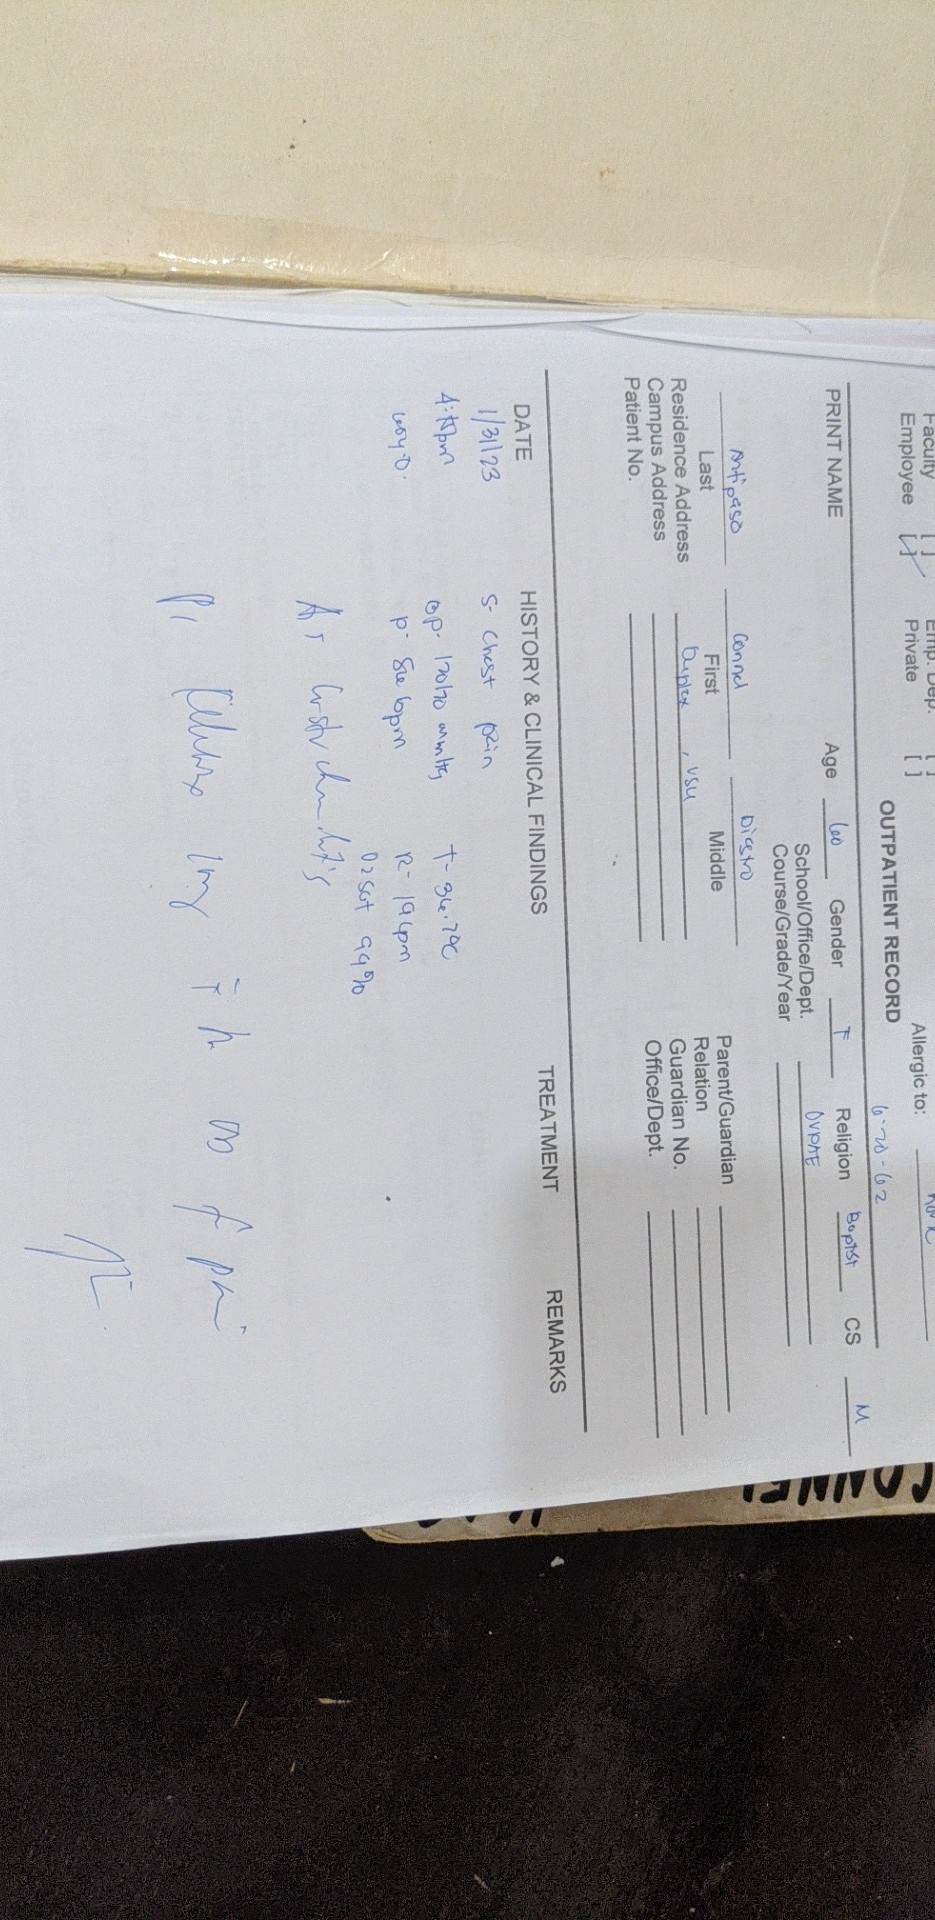 Faculty [ ] Emp. Dep. [ ] Allergic to: None
Employee [/] Private [ ]
OUTPATIENT RECORD 6-20-62
PRINT NAME Age 60 Gender F Religion Baptist CS M
School/Office/Dept. OVPAE
Course/Grade/Year
Antipaso Connel Diestro
Last First Middle
Parent/Guardian
Residence Address Duplex, VSU
Relation
Campus Address
Guardian No.
Patient No.
Office/Dept.
DATE HISTORY & CLINICAL FINDINGS TREATMENT REMARKS
1/31/23 S- Chest pain
BP- 120/70 mmHg T- 36.7°C
60y.o. P- bpm R- 19 cpm
O2 sat 99%
A: Costochondritis
P: